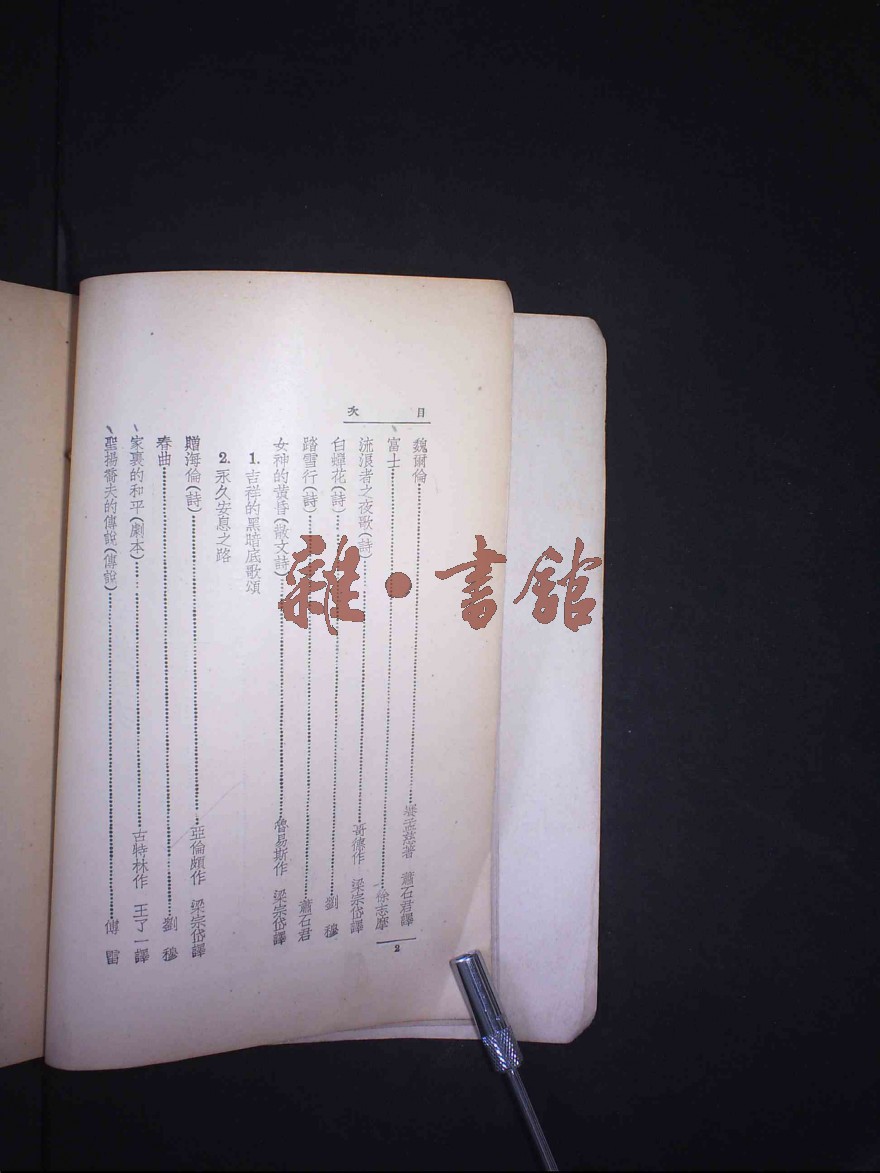 目次
魏爾倫 著 蕭石君譯
富士 徐志摩
流浪者之夜歌(詩) 哥德作 梁宗岱譯
白蟬花(詩) 劉穆
踏雪行(詩) 蕭石君
女神的黄昏(散文詩) 魯易斯作 梁宗岱譯
1. 吉祥的黑暗底歌頌
2. 永久安息之路
贈海倫(詩) 亞倫頗作 梁宗岱譯
春曲 劉穆
家裏的和平(劇本) 古特林作 王了一譯
聖揚喬夫的傳說(傳說) 傅雷
2
雜·書館